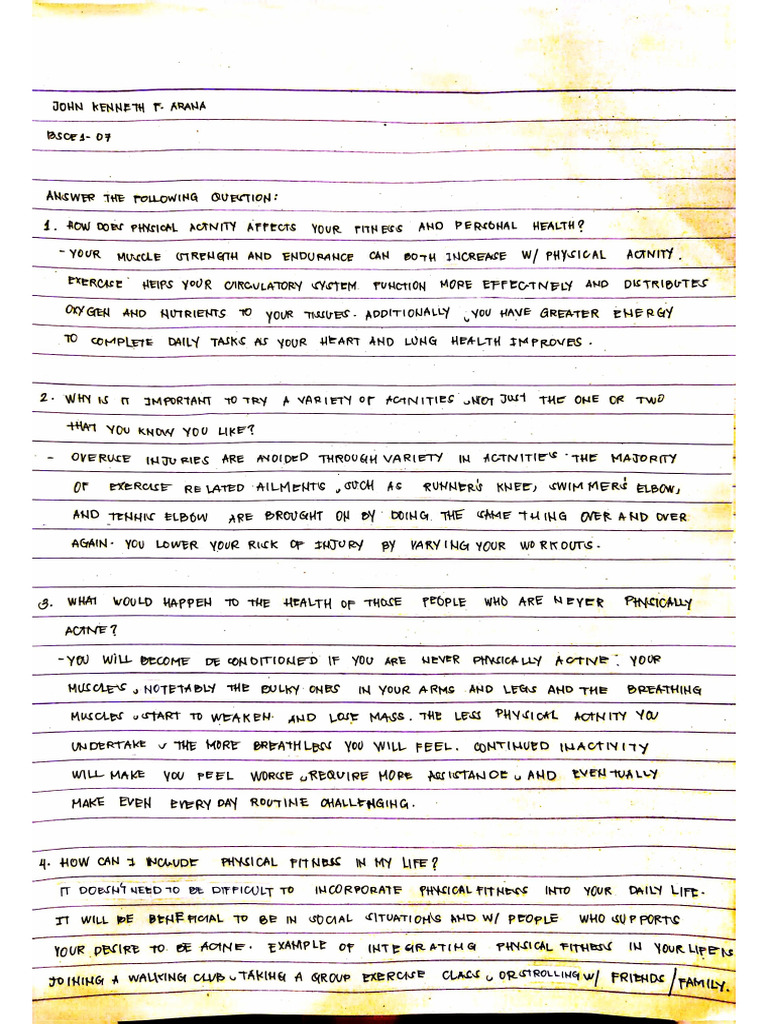 JOHN KENNETH T. ARANA
BSCE1-07
ANSWER THE FOLLOWING QUESTION:
1. HOW DOES PHYSICAL ACTIVITY AFFECTS YOUR FITNESS AND PERSONAL HEALTH?
- YOUR MUSCLE STRENGTH AND ENDURANCE CAN BOTH INCREASE W/ PHYSICAL ACTIVITY.
EXERCISE HELPS YOUR CIRCULATORY SYSTEM FUNCTION MORE EFFECTIVELY AND DISTRIBUTES
OXYGEN AND NUTRIENTS TO YOUR TISSUES. ADDITIONALLY, YOU HAVE GREATER ENERGY
TO COMPLETE DAILY TASKS AS YOUR HEART AND LUNG HEALTH IMPROVES.
2. WHY IS IT IMPORTANT TO TRY A VARIETY OF ACTIVITIES, NOT JUST THE ONE OR TWO
THAT YOU KNOW YOU LIKE?
- OVERUSE INJURIES ARE AVOIDED THROUGH VARIETY IN ACTIVITIES. THE MAJORITY
OF EXERCISE RELATED AILMENTS, SUCH AS RUNNER'S KNEE, SWIMMER'S ELBOW,
AND TENNIS ELBOW ARE BROUGHT ON BY DOING THE SAME THING OVER AND OVER
AGAIN. YOU LOWER YOUR RISK OF INJURY BY VARYING YOUR WORKOUTS.
3. WHAT WOULD HAPPEN TO THE HEALTH OF THOSE PEOPLE WHO ARE NEVER PHYSICALLY
ACTIVE?
- YOU WILL BECOME DECONDITIONED IF YOU ARE NEVER PHYSICALLY ACTIVE. YOUR
MUSCLES, NOTETABLY THE BULKY ONES IN YOUR ARMS AND LEGS AND THE BREATHING
MUSCLES, START TO WEAKEN AND LOSE MASS. THE LESS PHYSICAL ACTIVITY YOU
UNDERTAKE, THE MORE BREATHLESS YOU WILL FEEL. CONTINUED INACTIVITY
WILL MAKE YOU FEEL WORSE, REQUIRE MORE ASSISTANCE, AND EVENTUALLY
MAKE EVEN EVERYDAY ROUTINE CHALLENGING.
4. HOW CAN I INCLUDE PHYSICAL FITNESS IN MY LIFE?
IT DOESN'T NEED TO BE DIFFICULT TO INCORPORATE PHYSICAL FITNESS INTO YOUR DAILY LIFE.
IT WILL BE BENEFICIAL TO BE IN SOCIAL SITUATIONS AND W/ PEOPLE WHO SUPPORTS
YOUR DESIRE TO BE ACTIVE. EXAMPLE OF INTEGRATING PHYSICAL FITNESS IN YOUR LIFE IS
JOINING A WALKING CLUB, TAKING A GROUP EXERCISE CLASS, OR STROLLING W/ FRIENDS/FAMILY.